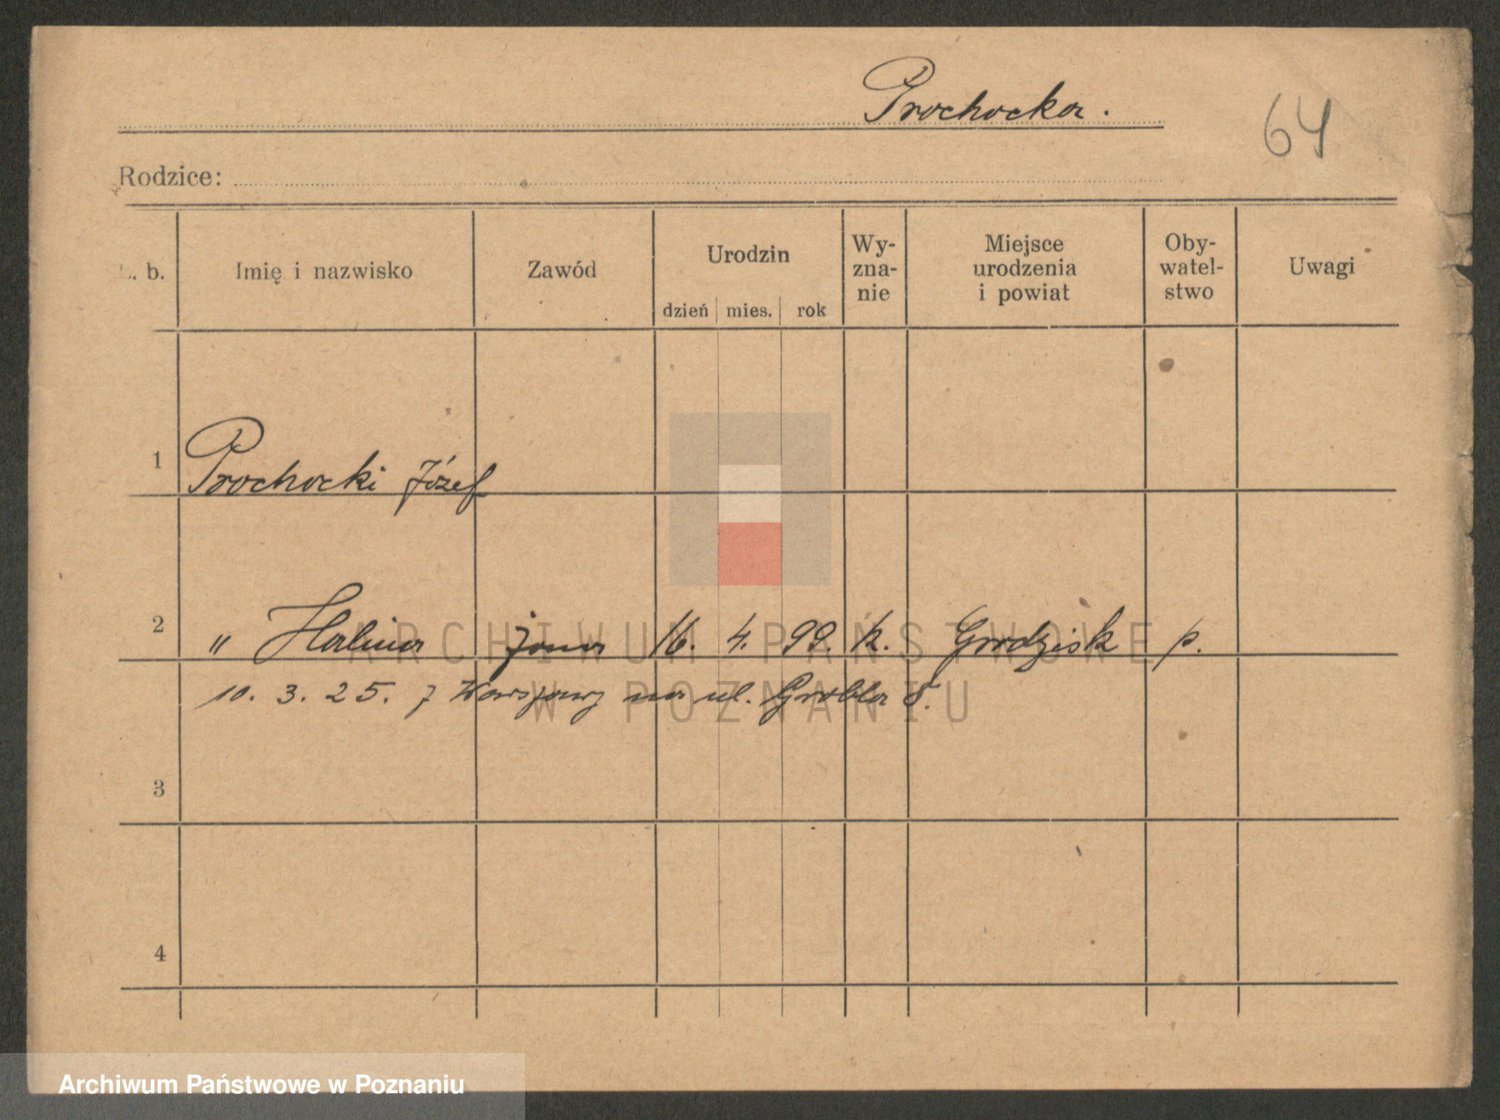 Prochocka.
64
Rodzice:
L. b. Imię i nazwisko Zawód Urodzin dzień mies. rok Wy-zna-nie Miejsce urodzenia i powiat Oby-watel-stwo Uwagi
1 Prochocki Józef
2 " Halina żona 16. 4. 99. k. Grodzisk p.
10. 3. 25. z Warszawy na ul. Grobla 8.
3
4
ARCHIWUM PAŃSTWOWE
W POZNANIU
Archiwum Państwowe w Poznaniu